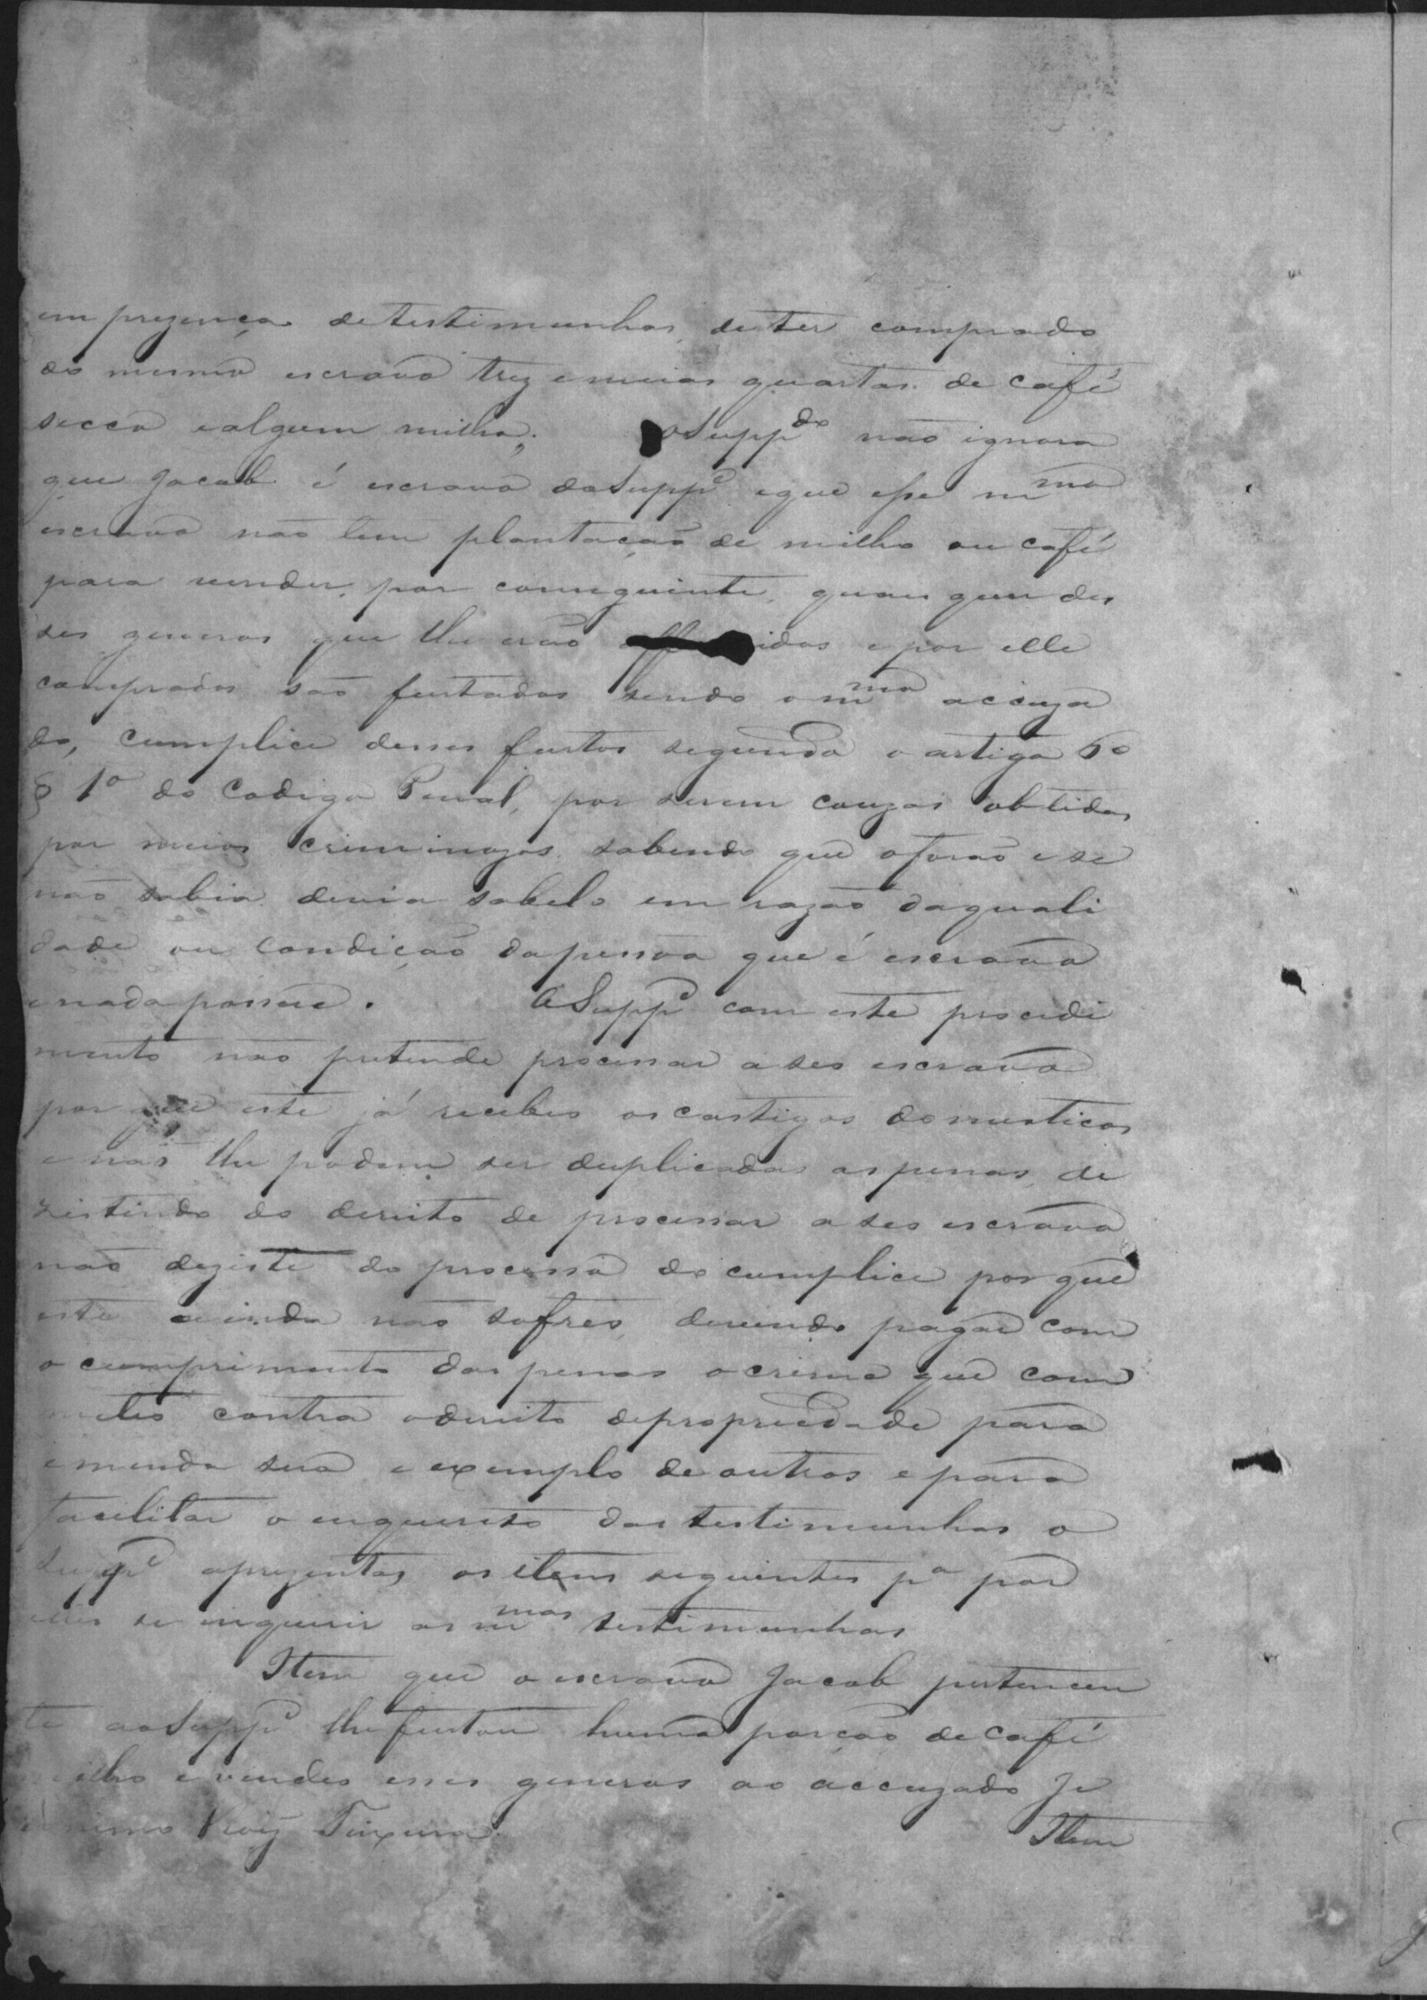 em prezença de testimunhas, de ter comprado
do mesmo escravo trez e meias quartas de café
secco e algum milho. O Supp.do não ignora
que Jacob é escravo do Supp.e e que esse m.mo
escravo não tem plantação de milho ou café
para vender, por conseguinte, quaes quer des
ses generos que lhe erão idos e por elle
comprados são furtados sendo o m.mo accuza
do, cumplice desses furtos segundo o artigo 6º
§ 1º do Codigo Penal, por serem couzas obtidas
por meios criminozos, sabendo que o forão e se
não sabia devia sabelo em razão da quali
dade ou condição da pessoa que é escravo
e nada possue. O Supp.e com este procedi
mento não pretende processar a seo escravo
por que este já recebeo os castigos domesticos
e não lhe podem ser duplicadas as penas, de
zistindo do dereito de processar a seo escravo
não deziste do processo do cumplice por que
este ainda não sofreo, devendo pagar com
o cumprimento das penas o crime que com
meteo contra o dereito de propriedade para
emenda sua e exemplo de outros e para
facilitar o inquerito das testimunhas o
Supp.e aprezenta os itens seguintes p.a por
elles se inquerir as m.mas testimunhas
Item que o escravo Jacob pertencen
te ao Supp.e lhe furtou huma porção de café
e milho e vendeo esses generos ao accuzado Je
ronimo Roiz Teixeira. Item